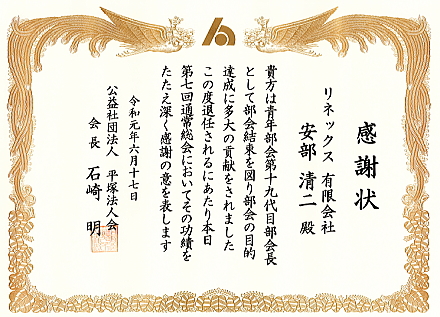 感謝状
リネックス 有限会社
安部 清二 殿
貴方は青年部会第十九代目部会長
として部会結束を図り部会の目的
達成に多大の貢献をされました
この度退任されるにあたり本日
第七回通常総会においてその功績を
たたえ深く感謝の意を表します
令和元年六月十七日
公益社団法人 平塚法人会
会長 石崎 明